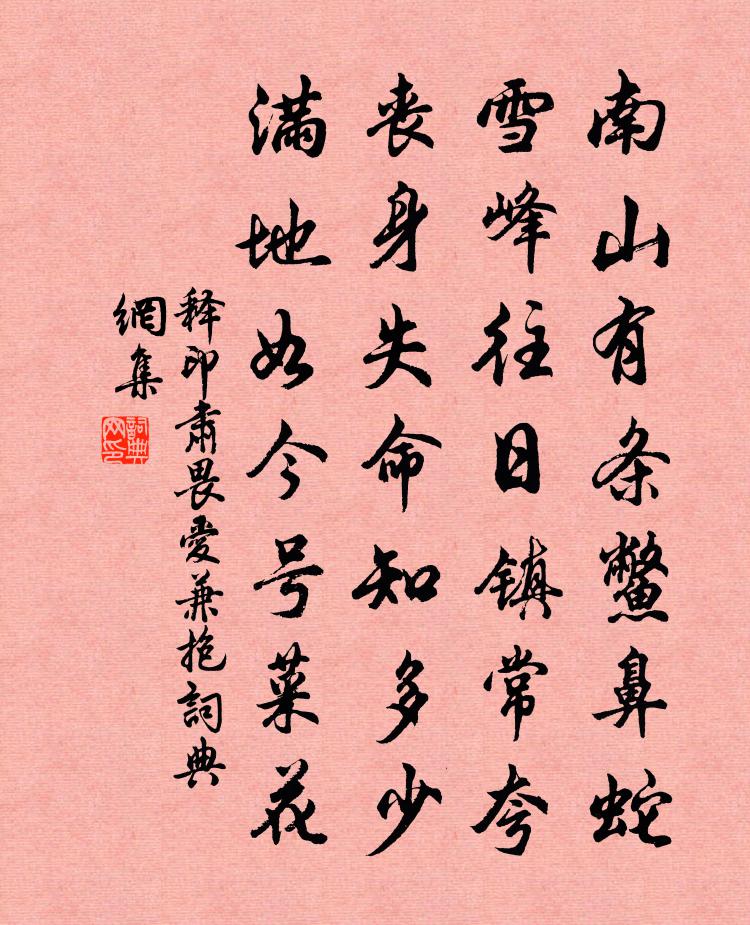 南山有条鳖鼻蛇
雪峰往日镇常夸
丧身失命知多少
满地如今号菜花
释印肃畏爱兼抱詞典
網集
詞典
网印